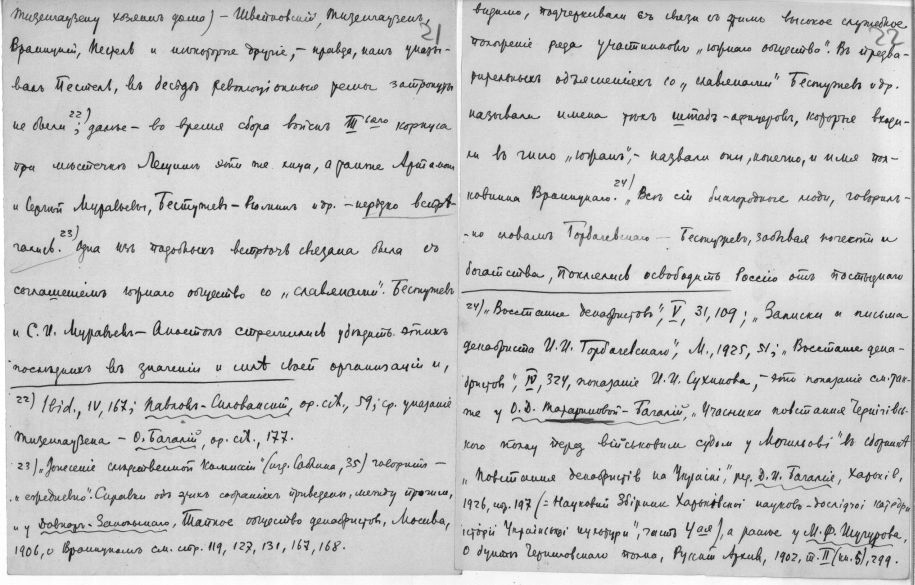 21
Тизенгаузену хозяин дома) – Швейковский, Тизенгаузен,
Враницкий, Пестель и некоторые другие, – правда, нам указы-
вал Пестель, въ бесѣдѣ революціонные темы затронуты
не были 22); далѣе – во время сбора войскъ III-его корпуса
при мѣстечкѣ Лещинѣ эти же лица, а также Артамон
и Сергѣй Муравьевы, Бестужев-Рюминъ и др. – нерѣдко встрѣ-
чались. 23) Одна изъ подобныхъ встрѣчъ связана была съ
соглашеніемъ южнаго общества со „славянами". Бестужевъ
и С. И. Муравьевъ-Апостол стремились убѣдить этихъ
послѣднихъ въ значеніи и силѣ своей организаціи и,
22) Ibid., IV, 167; Павловъ-Сильванскій, op. cit., 59; ср. указаніе
Тизенгаузена – О. Багалій, op. cit., 177.
23) „Донесеніе слѣдственной Комиссіи" (изд. Саблина, 35) говоритъ –
„ежедневно". Справки объ этихъ собраніяхъ приведены, между прочим,
и у Довнаръ-Запольскаго, Тайное общество декабристов, Москва,
1906, о Враницкомъ см. стр. 119, 127, 131, 167, 168.
22
видимо, подчеркивали въ связи съ этимъ высокое служебное
положеніе ряда участниковъ „южнаго общества". Въ предва-
рительныхъ объясненіяхъ со „славянами" Бестужев и др.
называли имена тѣхъ штабъ-офицеровъ, которые входи-
ли въ число „южанъ", – назвали они, конечно, и имя пол-
ковника Враницкаго. 24) „Всѣ сіи благородные люди, говорилъ –
– по словамъ Горбачевскаго – Бестужевъ, забывая почести и
богатства, поклялись освободить Россію отъ постыднаго
24) „Восстание декабристов", V, 31, 109; „Записки и письма
декабриста И. И. Горбачевскаго", М., 1925, 51; „Восстание дека-
бристов", IV, 324, показаніе И. И. Сухинова, – это показаніе см. так-
же у О. Д. Багалій, „Учасники повстання Чернігівсь-
кого полку перед військовим судом у Могильові" в сборникѣ
„Повстання декабристів на Україні", ред. Д. И. Багалія, Харьків,
1926, стр. 197 (= Науковий Збірник Харьковської науково-дослідчої катедри
історії Української культури", часть 4-ая), а ранѣе у М. Ф. Шугурова,
О бунтѣ Черниговскаго полка, Русский Архив, 1902, т. II (кн. 5), 299.